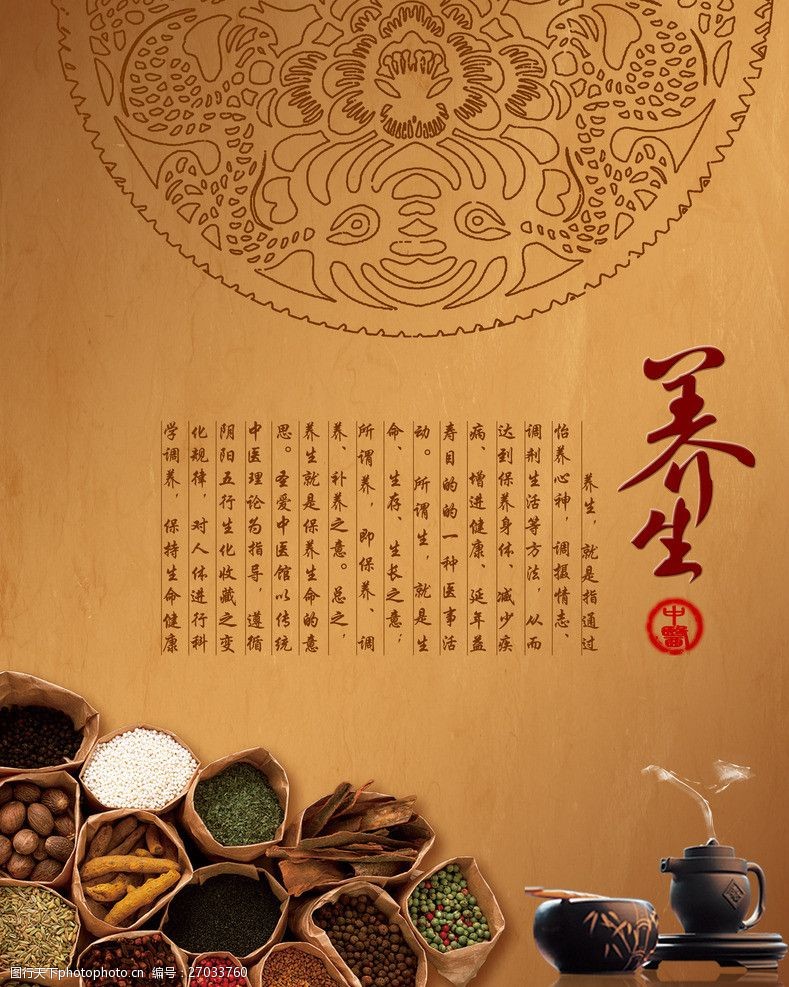 养生
中醫
养生，就是指通过
怡养心神，调摄情志、
调剂生活等方法，从而
达到保养身体、减少疾
病、增进健康、延年益
寿目的的一种医事活
动。所谓生，就是生
命、生存、生长之意；
所谓养，即保养、调
养、补养之意。总之，
养生就是保养生命的意
思。圣爱中医馆以传统
中医理论为指导，遵循
阴阳五行生化收藏之变
化规律，对人体进行科
学调养，保持生命健康
图行天下photophoto.cn 编号：27033760